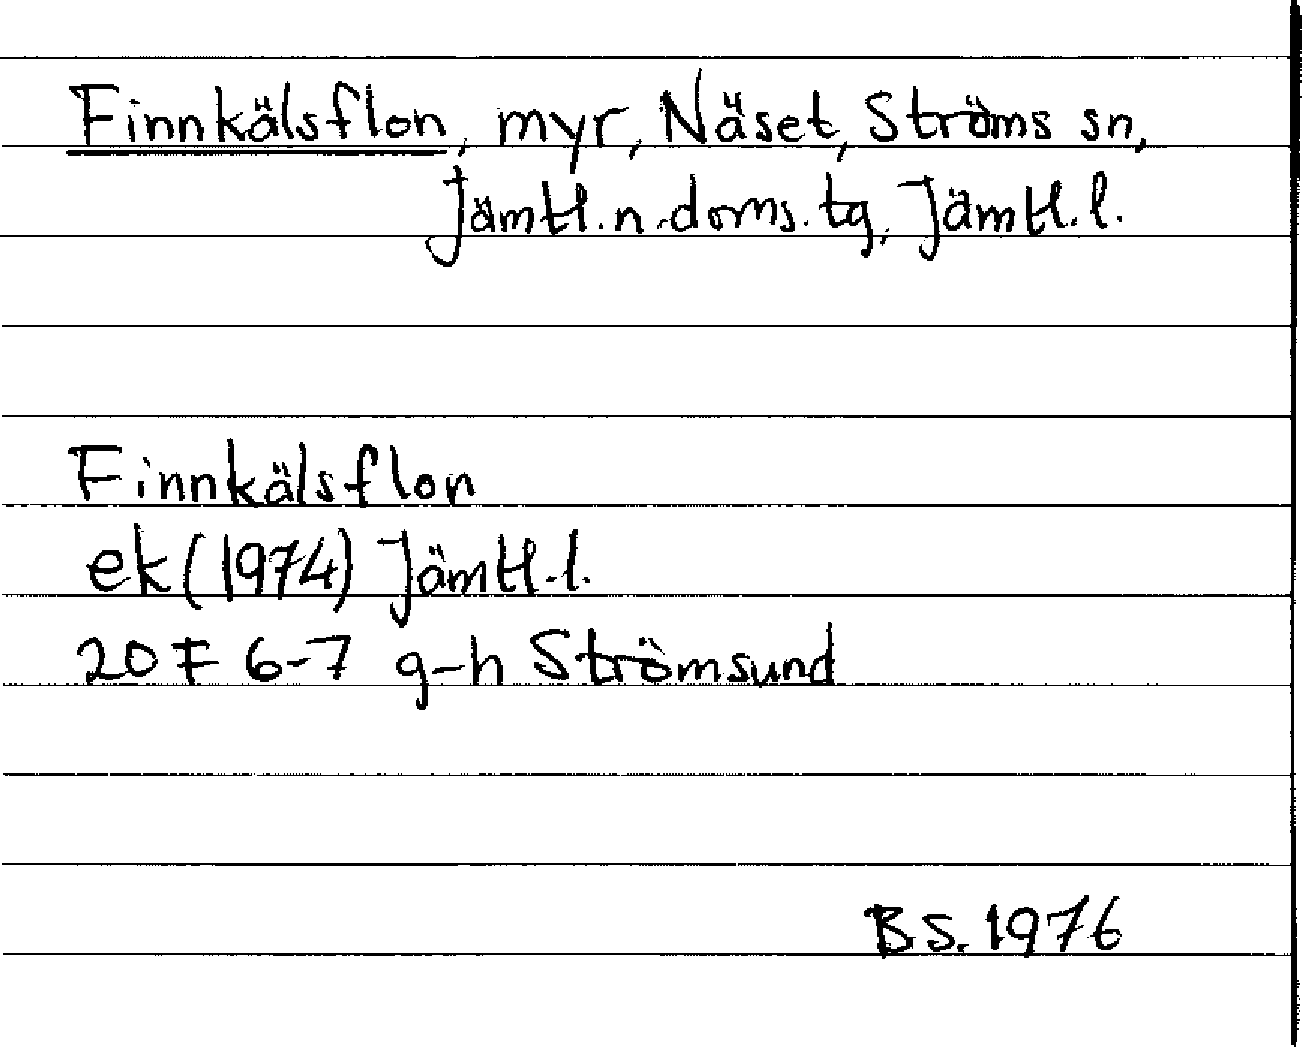 Finnkälsflon, myr, Näset, Ströms sn,
Jämtl.n.doms.tg, Jämtl.l.
Finnkälsflon
ek (1974) Jämtl.l.
20 F 6-7 g-h Strömsund
BS. 1976